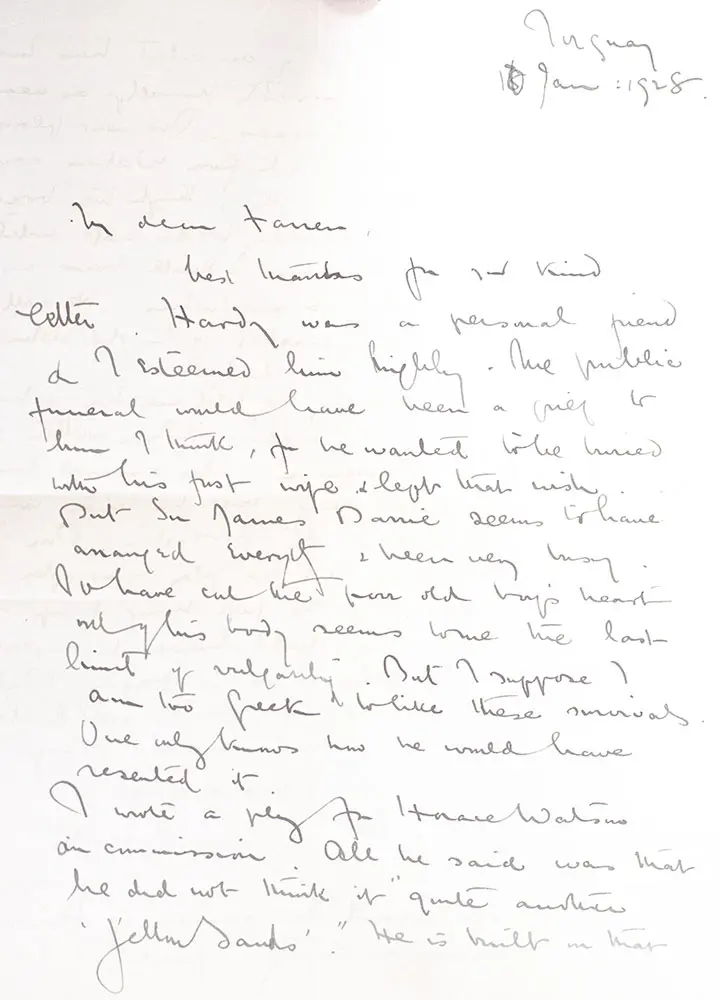 Torquay
16 Jan: 1928.
My dear Farren,
best thanks for your kind
letter. Hardy was a personal friend
& I esteemed him highly. The public
funeral would have been a grief to
him I think, for he wanted to be buried
with his first wife & left that wish.
But Sir James Barrie seems to have
arranged everyt & been very busy.
To have cut the poor old boy's heart
out of his body seems to me the last
limit of vulgarity. But I suppose I
am too Greek to like these survivals.
One only knows how he would have
resented it
I wrote a play for Horace Watson
on commission. All he said was that
he did not think it "quite another
'Yellow Sands'." He is built in that